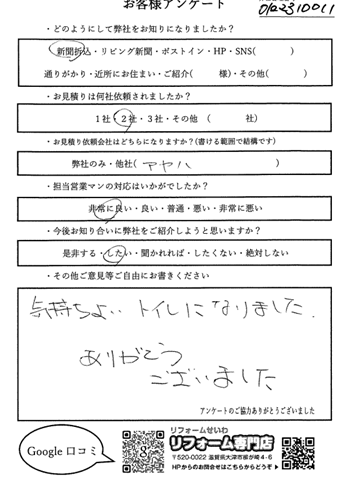 お客様アンケート
0102310011
・どのようにして弊社をお知りになりましたか?
新聞折込・リビング新聞・ポストイン・HP・SNS( )
通りがかり・近所にお住まい・ご紹介( 様)・その他( )
・お見積りは何社依頼されましたか?
1社・2社・3社・その他 ( 社)
・お見積り依頼会社はどちらになりますか?(書ける範囲で結構です)
弊社のみ・他社( アヤハ )
・担当営業マンの対応はいかがでしたか?
非常に良い・良い・普通・悪い・非常に悪い
・今後お知り合いに弊社をご紹介しようと思いますか?
是非する・したい・聞かれれば・したくない・絶対しない
・その他ご意見等ご自由にお書きください
気持ちよい トイレになりました.
ありがとう
ございました
アンケートのご協力ありがとうございました
Google口コミ
g
リフォームせいわ
リフォーム専門店
〒520-0022 滋賀県大津市柳が崎4-6
HPからのお問合せはこちらからどうぞ